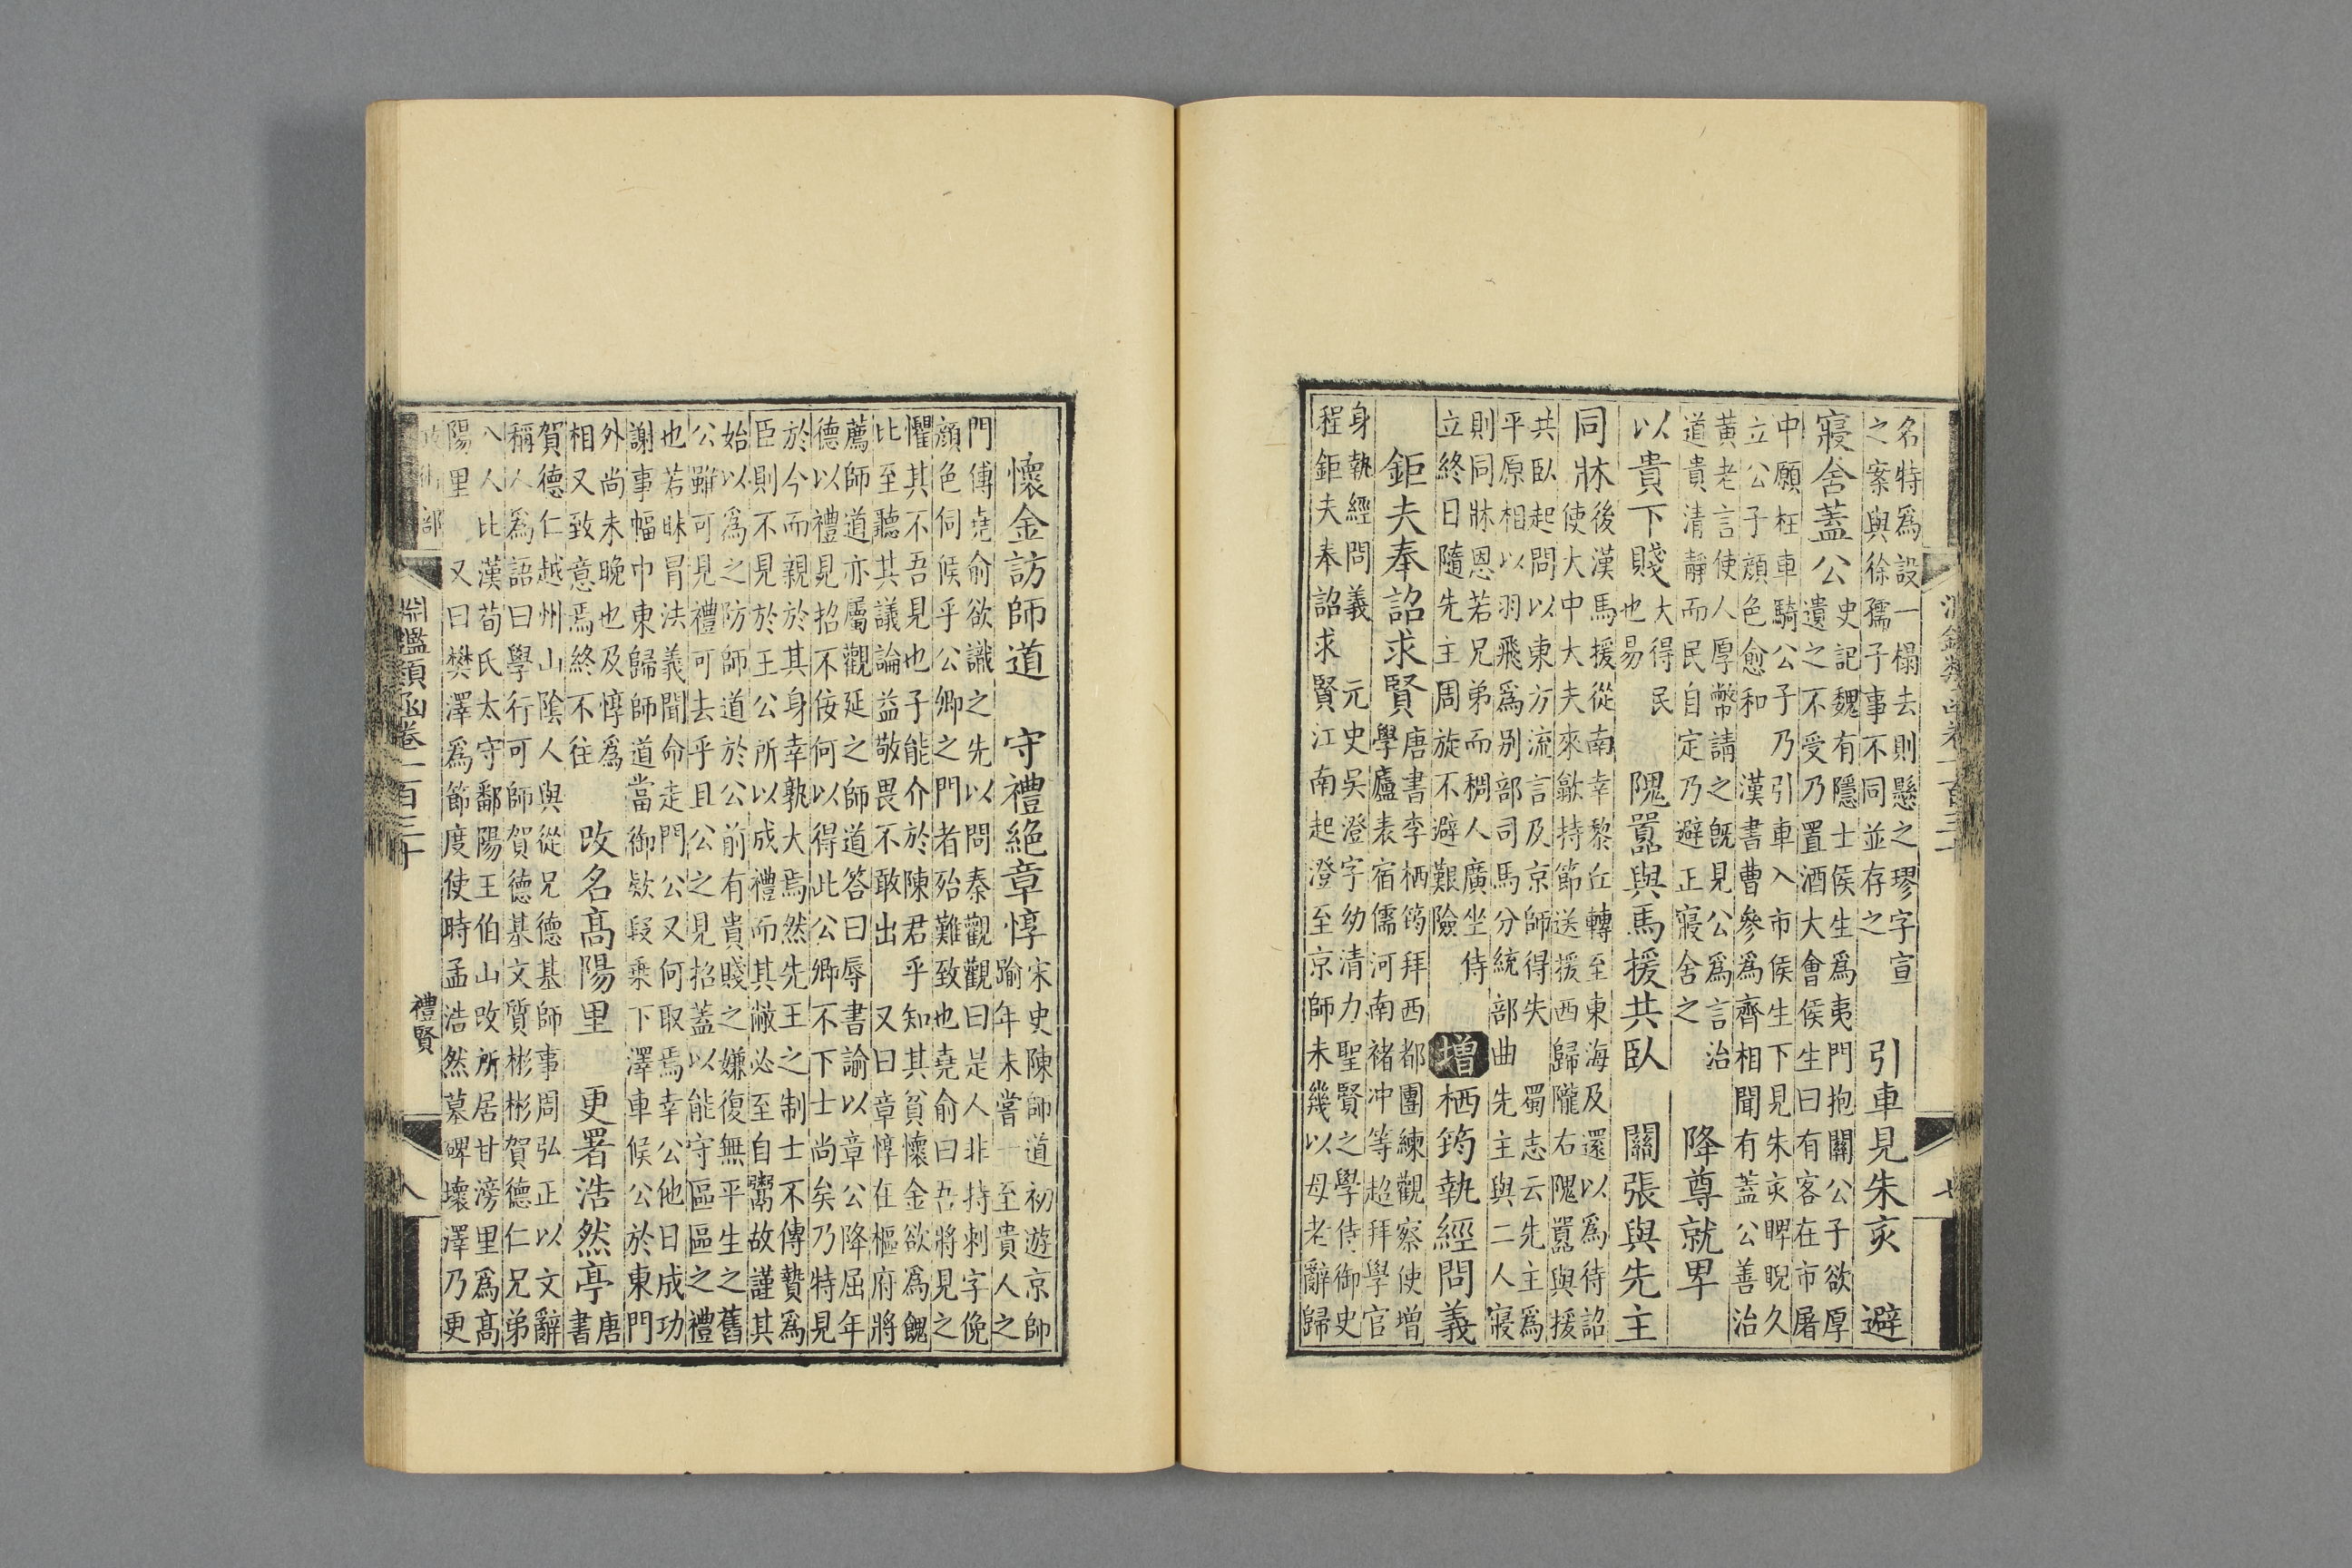 淵鑑類函卷一百三十
七
名特爲設一榻去則懸之璆字宣
之案與徐孺子事不同並存之
引車見朱亥 避
寢舍蓋公
史記魏有隱士侯生爲夷門抱關公子欲厚
遺之不受乃置酒大會侯生曰有客在市屠
中願枉車騎公子乃引車入市侯生下見朱亥睥睨久
立公子顔色愈和 漢書曹參爲齊相聞有蓋公善治
黄老言使人厚幣請之旣見公爲言治
道貴清靜而民自定乃避正寢舍之
降尊就卑
以貴下賤
大得民
也易
隗嚻與馬援共臥 關張與先主
同牀
後漢馬援從南幸黎丘轉至東海及還以爲待詔
使大中大夫來歙持節送援西歸隴右隗嚻與援
共臥起問以東方流言及京師得失 蜀志云先主爲
平原相以羽飛爲别部司馬分統部曲 先主與二人寢
則同牀恩若兄弟而稠人廣坐侍
立終日隨先主周旋不避艱險
增 栖筠執經問義
鉅夫奉詔求賢
唐書李栖筠拜西都團練觀察使增
學廬表宿儒河南褚冲等超拜學官
身執經問義 元史吳澄字幼清力聖賢之學侍御史
程鉅夫奉詔求賢江南起澄至京師未幾以母老辭歸
懷金訪師道 守禮絶章惇
宋史陳師道初遊京師
踰年未嘗一至貴人之
門傅堯俞欲識之先以問秦觀觀曰是人非持刺字俛
顔色伺候乎公卿之門者殆難致也堯俞曰吾將見之
懼其不吾見也子能介於陳君乎知其貧懷金欲爲餽
比至聽其議論益敬畏不敢出 又曰章惇在樞府將
薦師道亦屬觀延之師道答曰辱書諭以章公降屈年
德以禮見招不佞何以得此公卿不下士尚矣乃特見
於今而親於其身幸孰大焉然先王之制士不傳贄爲
臣則不見於王公所以成禮而其敝必至自鬻故謹其
始以爲之防師道於公前有貴賤之嫌復無平生之舊
公雖可見禮可去乎且公之見招蓋以能守區區之禮
也若昧冒法義聞命走門公又何取焉幸公他日成功
謝事幅巾東歸師道當御欵段乘下澤車候公於東門
外尚未晚也及惇爲
相又致意焉終不往
改名髙陽里 更署浩然亭
唐
書
賀德仁越州山隂人與從兄德基師事周弘正以文辭
稱人爲語曰學行可師賀德基文質彬彬賀德仁兄弟
八人比漢荀氏太守鄱陽王伯山改所居甘滂里爲髙
陽里 又曰樊澤爲節度使時孟浩然墓碑壞澤乃更
淵鑑類函卷一百三十
禮賢
八